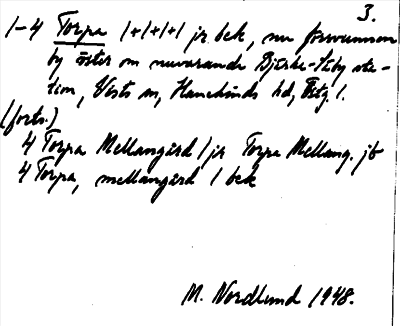 3.
1-4 Torpa 1+1+1+1 jr bek, nu försvunnen
by öster om nuvarande Bjärka-Säby sta-
tion, Vists sn, Hanekinds hd, Ög l.
(forts.)
4 Torpa Mellangård / jr Torpa Mellang. jb
4 Torpa, mellangård 1 bek
M. Nordlund 1948.